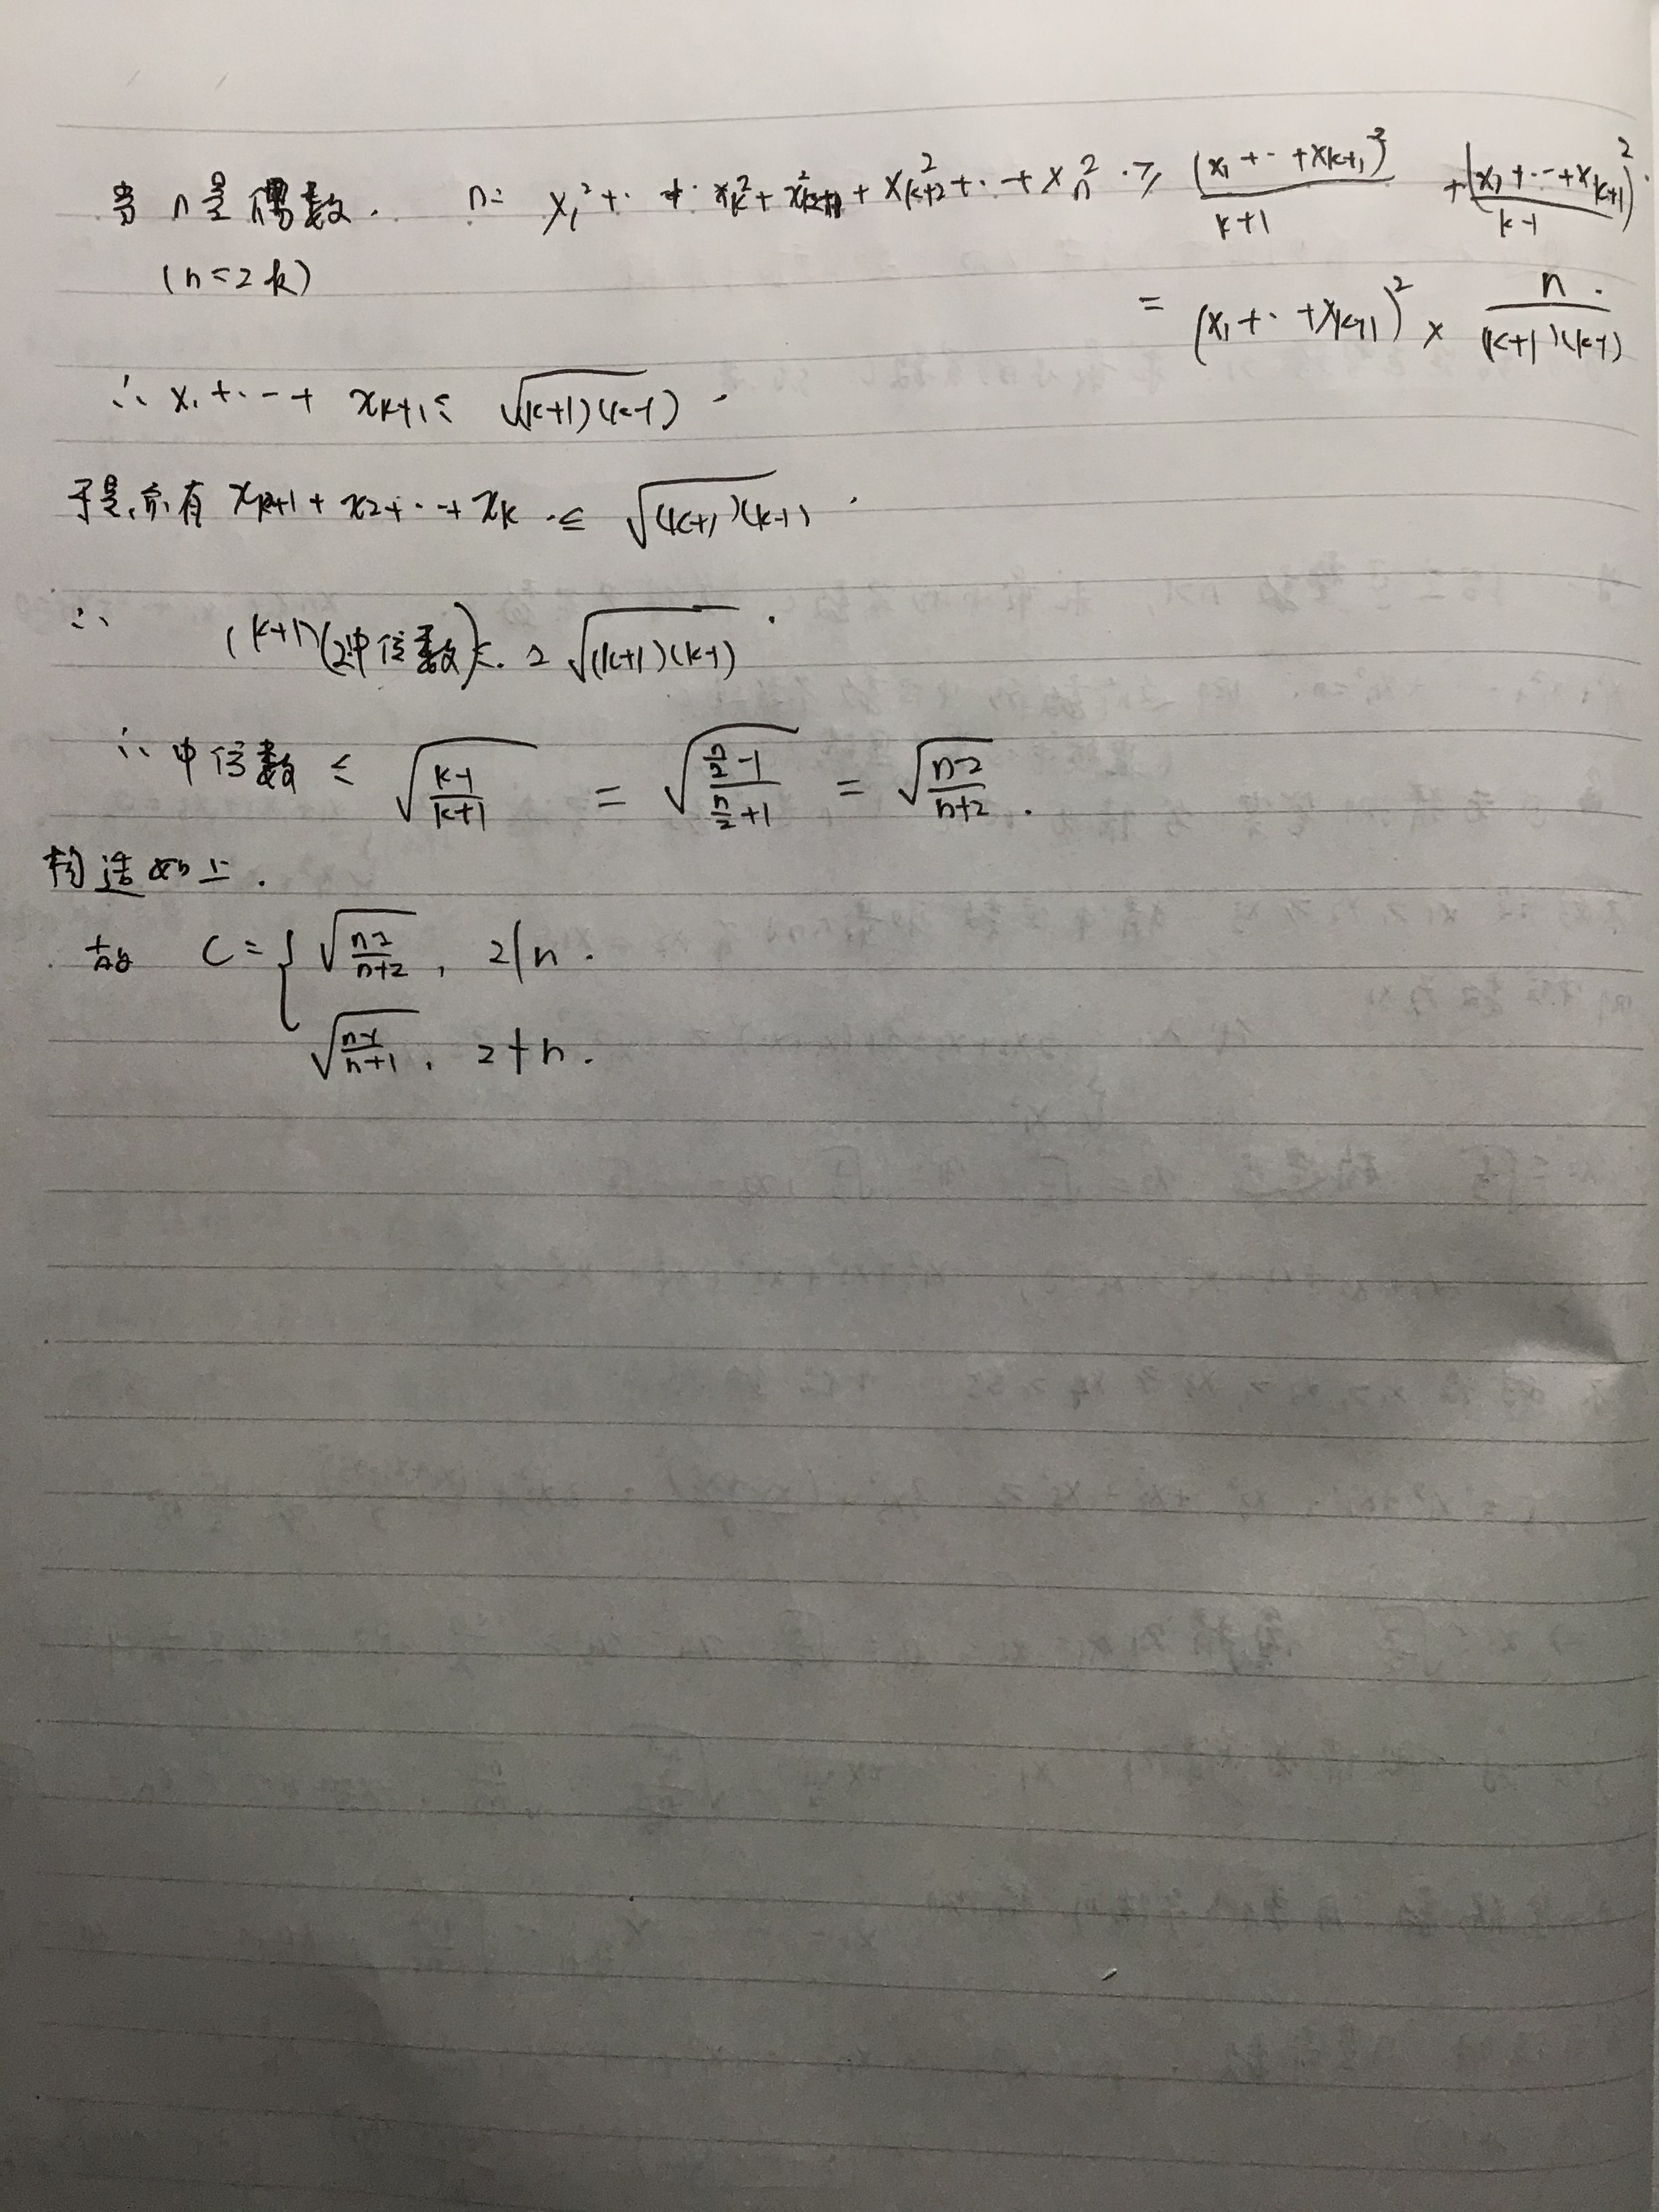 当 n是偶数. n= x₁²+··+·x_k²+x_{k+1}²+x_{k+2}²+··+x_n² ·≥ (x₁+··+x_{k+1})²/(k+1) + (x₁+··+x_{k+1})²/(k-1)
(n=2k)
= (x₁+··+x_{k+1})² × n/((k+1)(k-1))
∴ x₁+··-+ x_{k+1} ≤ √((k+1)(k-1))
于是,亦有 x_{k+1}+x₂+··+x_k ·≤ √((k+1)(k-1))
∴ (k+1)(2中位数)≤. 2√((k+1)(k-1))
∴ 中位数 ≤ √((k-1)/(k+1)) = √((n/2-1)/(n/2+1)) = √((n-2)/(n+2)).
构造如上.
故 C={ √((n-2)/(n+2)), 2|n.
√((n-1)/(n+1)), 2∤n.